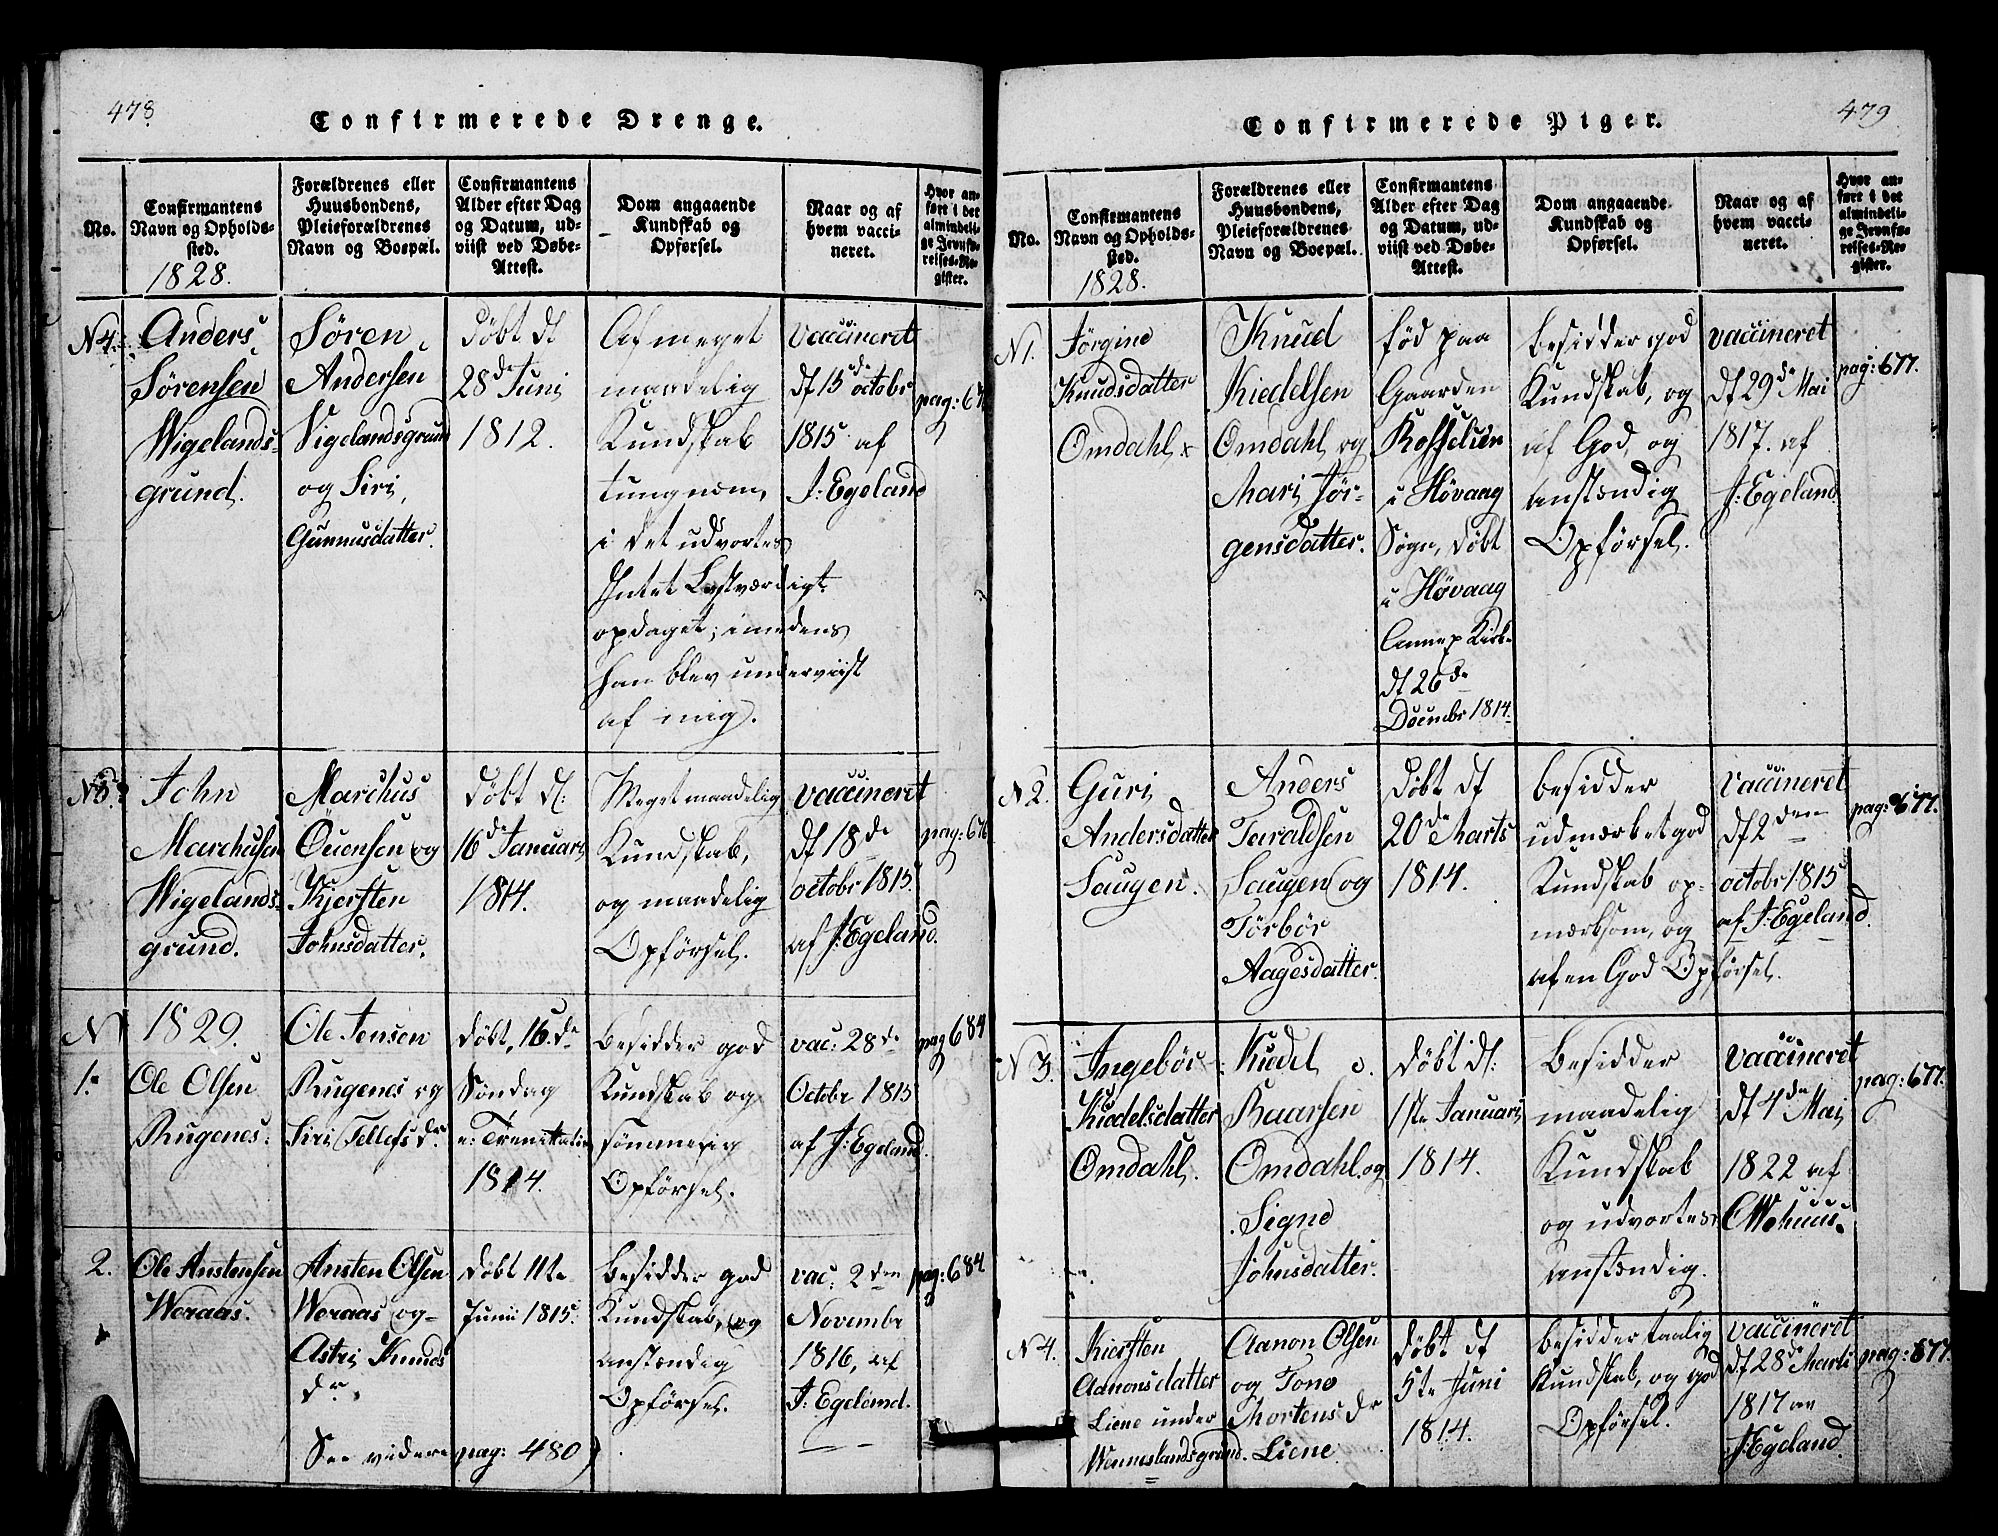 478.
Confirmerede Drenge.
No.
Confirmantens
Navn og Opholds-
sted.
1828.
Forældrenes eller
Huusbondens,
Pleieforældrenes
Navn og Boepæl.
Confirmantens
Alder efter Dag
og Datum, ud-
viist ved Døbe-
Attest.
Dom angaaende
Kundskab og
Opførsel.
Naar og af
hvem vacci-
neret.
Hvor an-
ført i det
almindeli-
ge Jevnfø-
relses-Re-
gister.
N4.
Anders
Sørensen
Wigelands-
grund.
Søren
Andersen
Vigelandsgrund
og Siri
Gunnusdatter.
Døbt d
28de Juni
1812.
Af meget
maadelig
Kundskab
tungnem,
i det udvortes
Intet Lastværdigt
opdaget; imedens
han blev underviist
af mig.
vaccineret
df 15de octobr
1815 af
J: Egeland
pag: 67
N5
John
Marchusen
Wigelands-
grund.
Marchus
Ouensen og
Kjersten
Johnsdatter.
Døbt d:
16de Januari
1814.
Meget maadelig
Kundskab,
og maadelig
Opførsel.
vaccineret
df 18de
octobr 1815.
af J: Egeland.
pag: 676
N
1.
1829.
Ole Olsen
Rugenes.
Ole Jensen
Rugenes og
Siri Tellefs dr.
Døbt, 16.de
Søndag
e: Trenitatis
1814.
Besidder god
Kundskab og
sømmelig
Opførsel.
vac: 28de
Octobr 1815
af J: Egeland.
pag 684
2.
Ole Anstensen
Weraas.
Ansten Olsen
Weraas og
Astri Knuds
dr.
Døbt 11te
Junii 1815.
Besidder god
Kundskab, og
anstændig
Opførsel.
vac: 2den
Novembr
1816, af
J: Egeland.
pag: 684
See videre pag: 480
479
Confirmerede Piger.
No.
Confirmantens
Navn og Opholds-
sted.
1828.
Forældrenes eller
Huusbondens,
Pleieforældrenes
Navn og Boepæl.
Confirmantens
Alder efter Dag
og Datum, ud-
viist ved Døbe-
Attest.
Dom angaaende
Kundskab og
Opførsel.
Naar og af
hvem vacci-
neret.
Hvor an-
ført i det
almindeli-
ge Jevnfø-
relses-Re-
gister.
N1.
Jørgine
Knudsdatter
Omdahl
Knud
Kiedelsen
Omdahl og
Mari Jør-
gensdatter.
født paa
Gaarden
Kosseliien
i Høvaag
Sogn, døbt
i Høvaag
Annex Kirke
df 26de
Decembr 1814.
besidder god
Kundskab, og
af God, og
anstændig
Opførsel.
vaccineret
df 29de Mai
1817. af
J: Egeland
pag: 677.
N2.
Guri
Andersdatter
Saugen.
Anders
Taraldsen
Saugen og
Tørbør
Aagesdatter.
Døbt df
20de Marts
1814.
besidder
udmærket god
Kundskab op-
mærksom, og
af en God Opførsel.
vaccineret
df 2den
octobr 1815
af J: Egeland.
pag: 677.
N3.
Ingebør
Kiedelsdatter
Omdahl.
Kiedel
Baarsen
Omdahl og
Signe
Johnsdatter.
Døbt d:
1ste Januari
1814.
Besidder
maadelig
Kundskab
og udvortes
anstændig.
vaccineret
df 4de Mai
1822 af
pag: 677.
N4.
Kiersten
Aanonsdatter
Liene under
Wenneslandsgrund.
Aanon Olsen
og Tone
Mortens dr
Liene.
Døbt df
5te Juni
1814.
besidder taalig
Kundskab, og god
Opførsel.
vaccineret
df 28de Marts
1817 av
J: Egeland.
pag: 677.